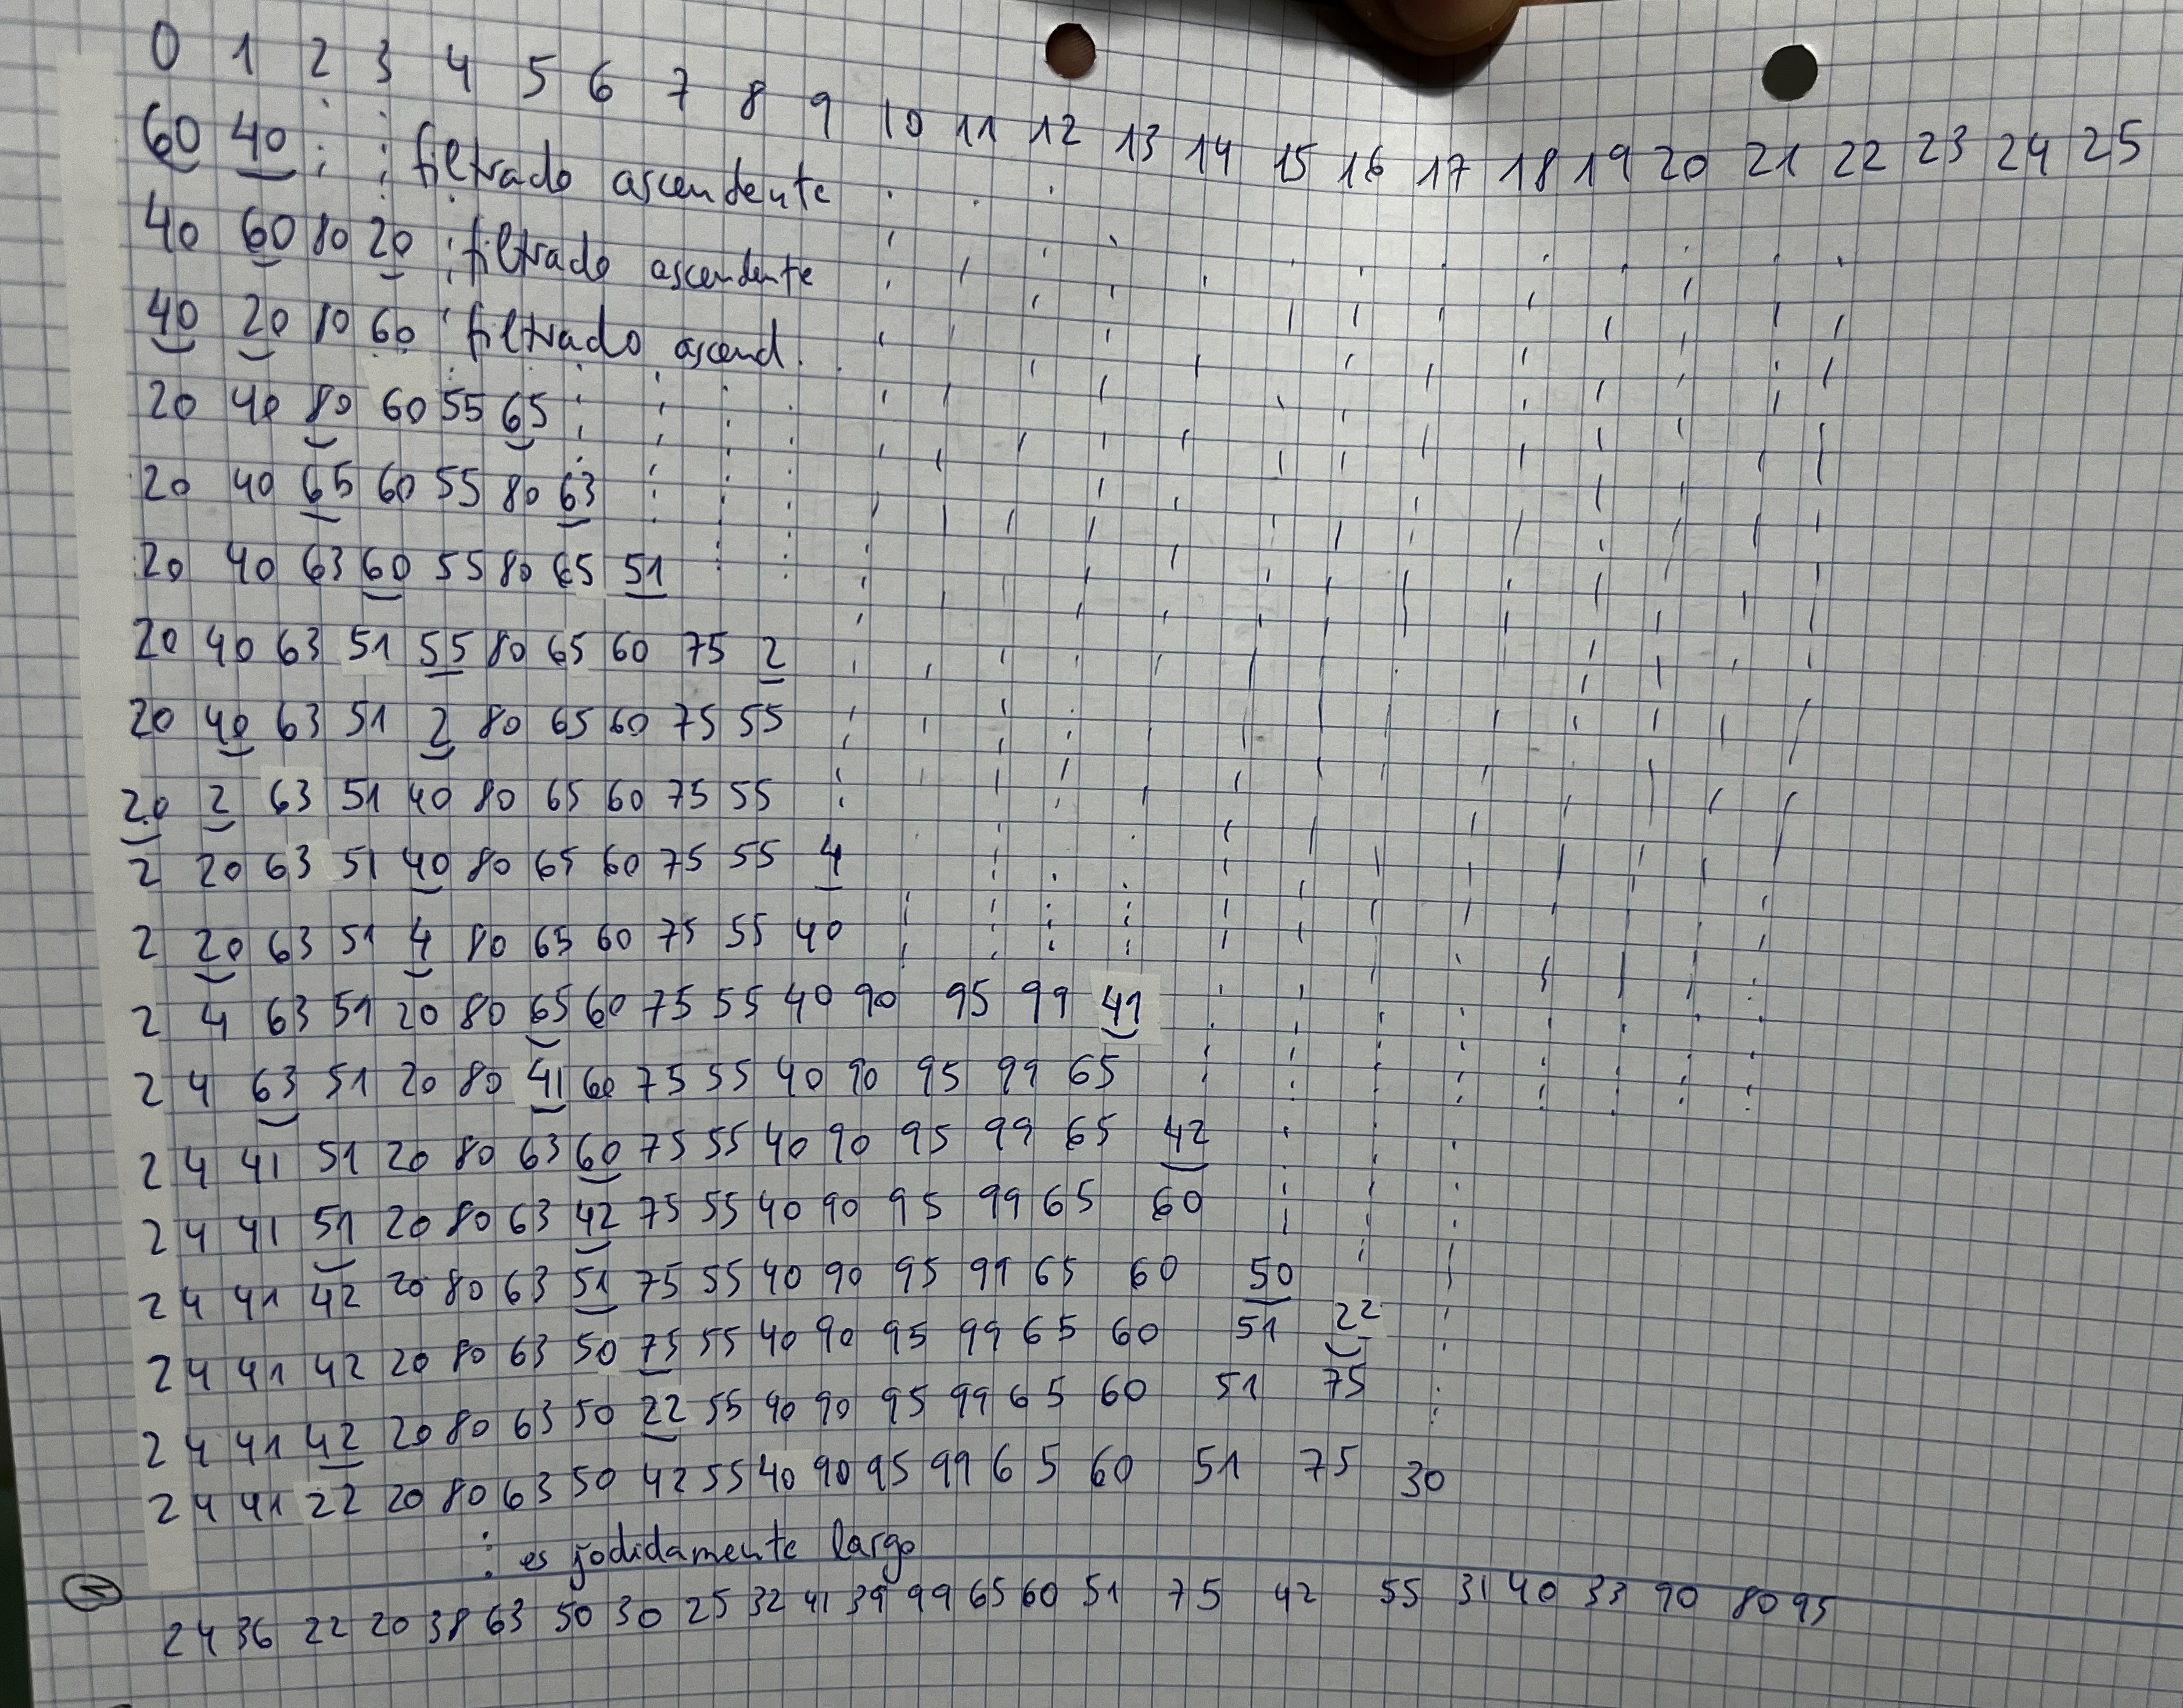 0 1 2 3 4 5 6 7 8 9 10 11 12 13 14 15 16 17 18 19 20 21 22 23 24 25
60 40 filtrado ascendente
40 60 80 20 filtrado ascendente
40 20 80 60 filtrado ascend.
20 40 80 60 55 65
20 40 65 60 55 80 63
20 40 63 60 55 80 65 51
20 40 63 51 55 80 65 60 75 2
20 40 63 51 2 80 65 60 75 55
20 2 63 51 40 80 65 60 75 55
2 20 63 51 40 80 65 60 75 55 4
2 20 63 51 4 80 65 60 75 55 40
2 4 63 51 20 80 65 60 75 55 40 90 95 99 41
2 4 63 51 20 80 41 60 75 55 40 90 95 99 65
2 4 41 51 20 80 63 60 75 55 40 90 95 99 65 42
2 4 41 51 20 80 63 42 75 55 40 90 95 99 65 60
2 4 41 42 20 80 63 51 75 55 40 90 95 99 65 60 50
2 4 41 42 20 80 63 50 75 55 40 90 95 99 65 60 51 22
2 4 41 42 20 80 63 50 22 55 40 90 95 99 65 60 51 75
2 4 41 22 20 80 63 50 42 55 40 90 95 99 65 60 51 75 30
⋮ es jodidamente largo
2 4 36 22 20 38 63 50 30 25 32 41 39 99 65 60 51 75 42 55 31 40 33 90 80 95